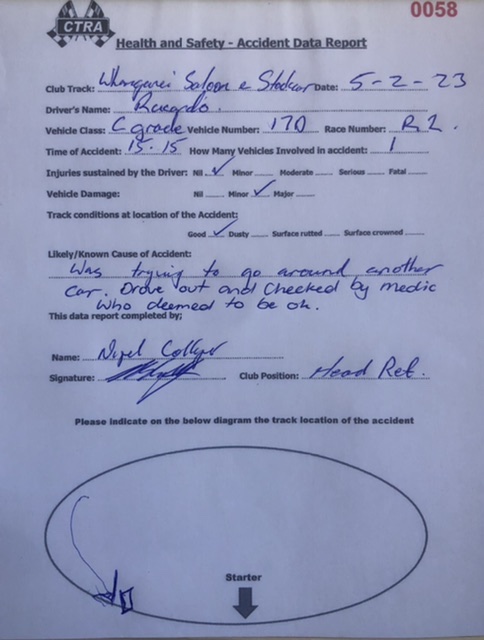 0058
CTRA
Health and Safety - Accident Data Report
Club Track: Whangarei Saloon e Stockcar Date: 5-2-23
Driver's Name: Ricardo.
Vehicle Class: C grade Vehicle Number: 17D Race Number: R2.
Time of Accident: 15-15 How Many Vehicles Involved in accident: 1
Injuries sustained by the Driver: Nil ✓ Minor Moderate Serious Fatal
Vehicle Damage: Nil Minor ✓ Major
Track conditions at location of the Accident:
Good ✓ Dusty Surface rutted Surface crowned
Likely/Known Cause of Accident:
Was trying to go around another
car. Drove out and checked by medic
who deemed to be ok.
This data report completed by;
Name: Nigel
Signature: Club Position: Head Ref.
Please indicate on the below diagram the track location of the accident
Starter